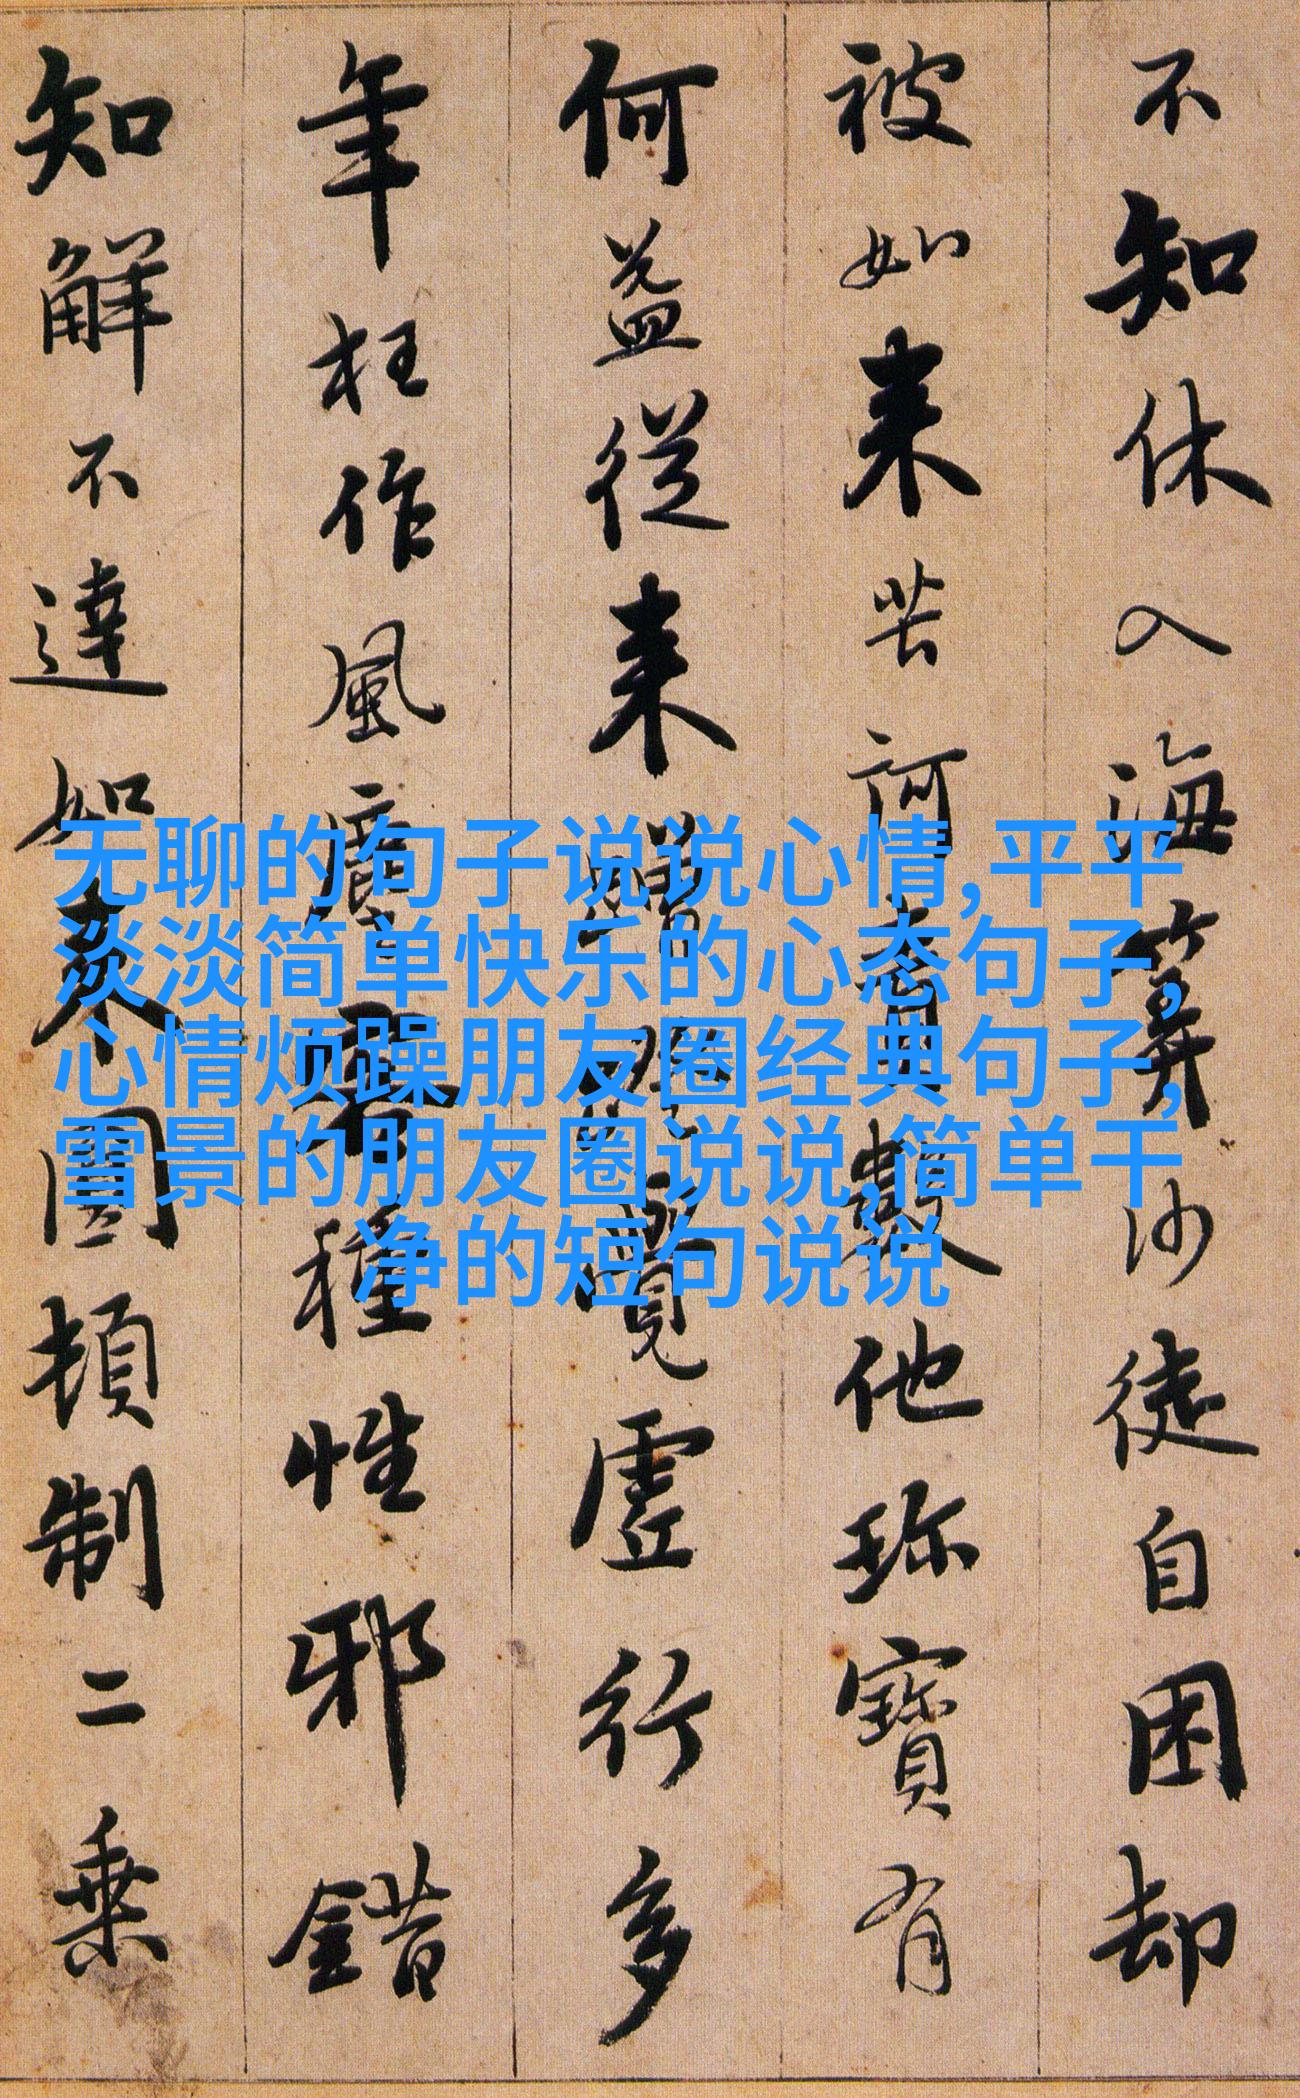 不知休入海筭沙徒自困却
被如来苦訶責數他珎寶有
何益從来蹭蹬覺虛行多
年枉作風塵客種性邪錯
知解不達如来圓頓制二乗
无聊的句子说说心情,平平
淡淡简单快乐的心态句子,
心情烦躁朋友圈经典句子,
雪景的朋友圈说说,简单干
净的短句说说